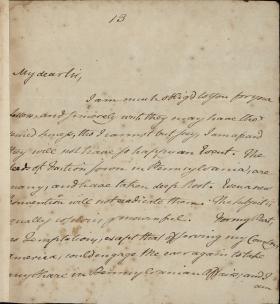 13
My dear Sir,
I am much oblig'd to you for your
and sincerely wish they may have the
tho' I cannot but say, I am afraid
they will not have so happy an Event. The
Seeds of Faction sown in Pennsylvania, are
many, and have taken deep Root. Even a new
Convention will not eradicate them. The Subject is
For my Part,
no Temptations, except that of serving my Country
America, could engage me ever again to take
any share in Pennsylvanian Affairs, and I
am